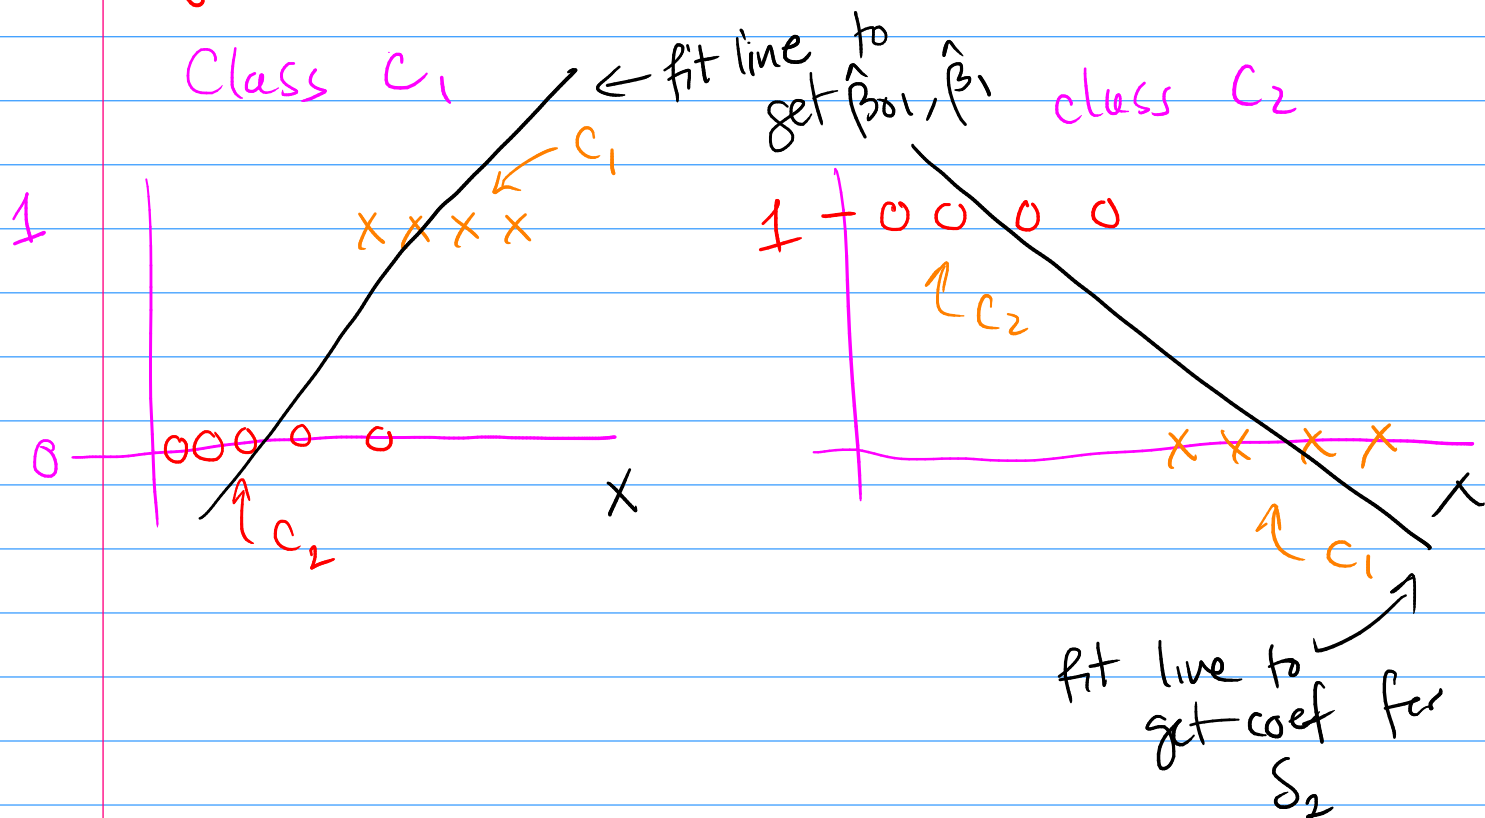 Class C₁
← fit line to
get β̂₀₁, β̂₁
class C₂
C₁
1
x x x x
0
o o o o o
x
C₂
1
o o o o
C₂
x x x x
x
C₁
fit line to
get coef for
δ₂